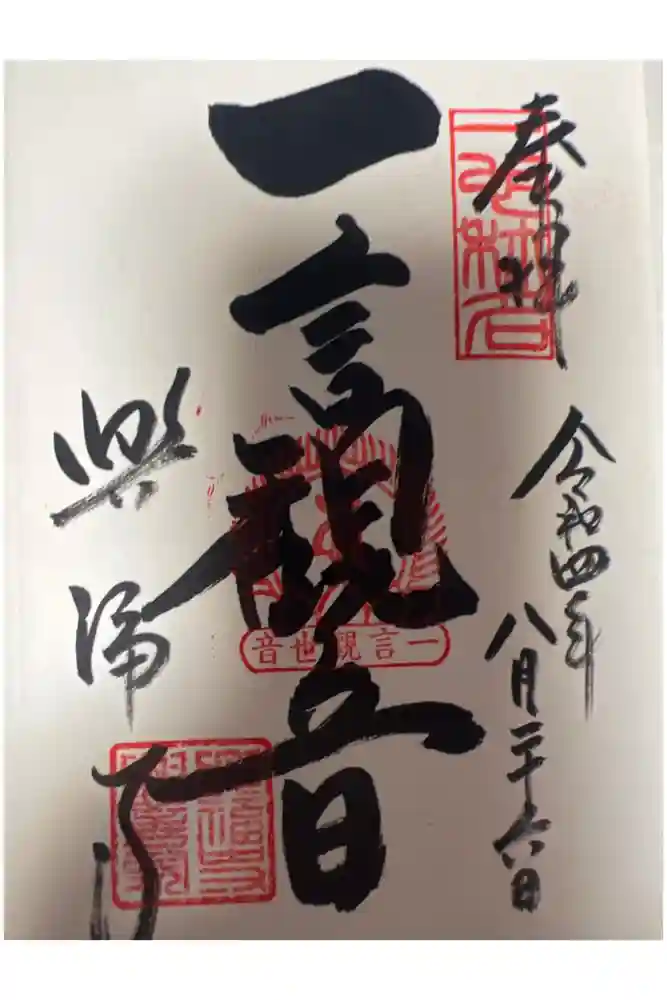 奉拝
令和四年
八月二十六日
一言観音
一言觀世音
興福寺